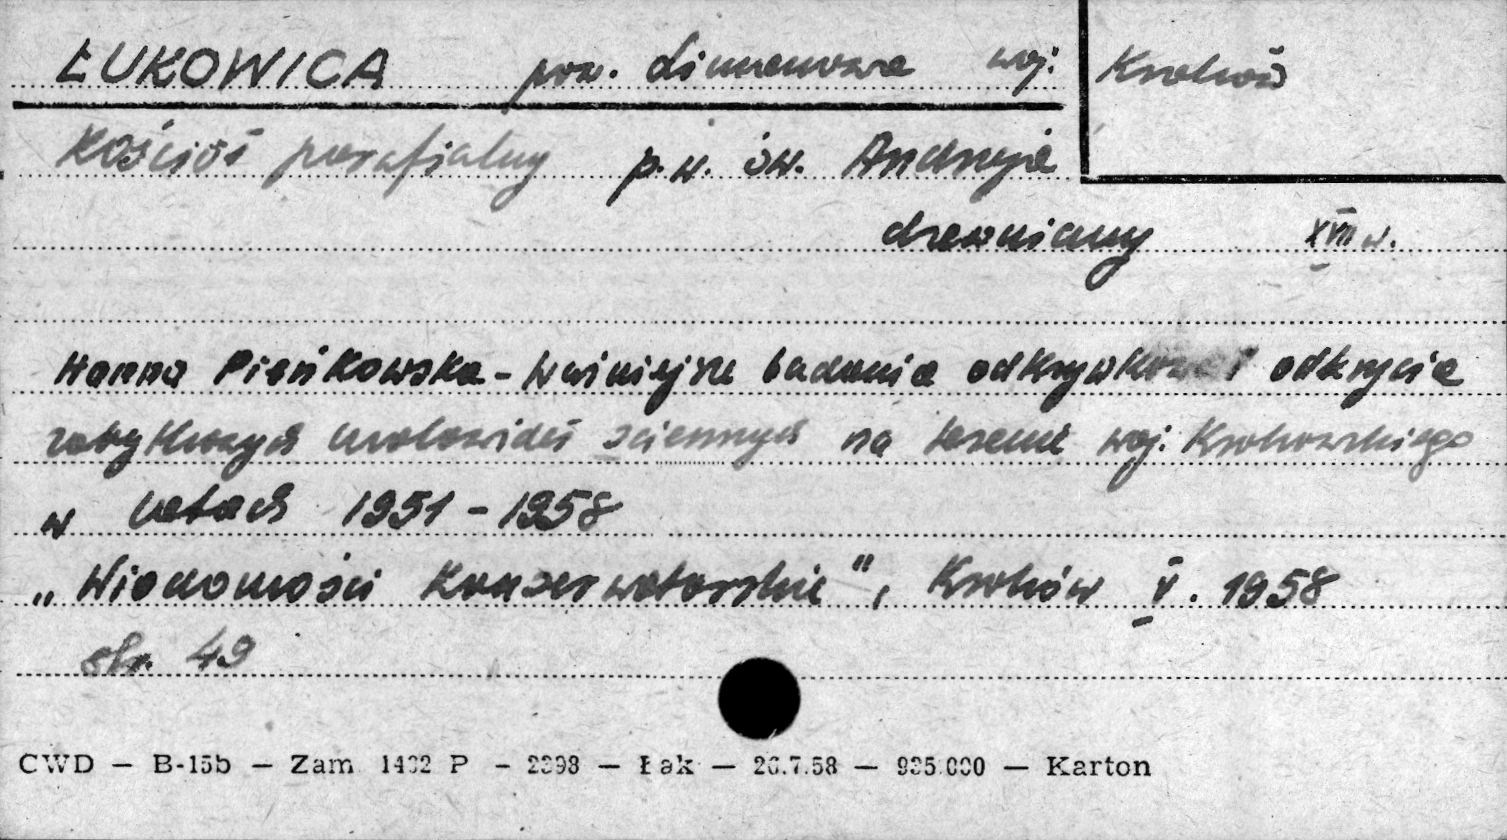 ŁUKOWICA pow. Limanowa woj. Kraków
Kościół parafialny p.w. św. Andrzeja
drewniany XVII w.
Hanna Pieńkowska - Ważniejsze badania odkrywkowe i odkrycia
zabytkowych malowideł ściennych na terenie woj. Krakowskiego
w latach 1951 - 1958
„Wiadomości Konserwatorskie", Kraków V. 1958
str. 49
CWD — B-15b — Zam 1432 P — 2398 — Łak — 26.7.58 — 935.000 — Karton